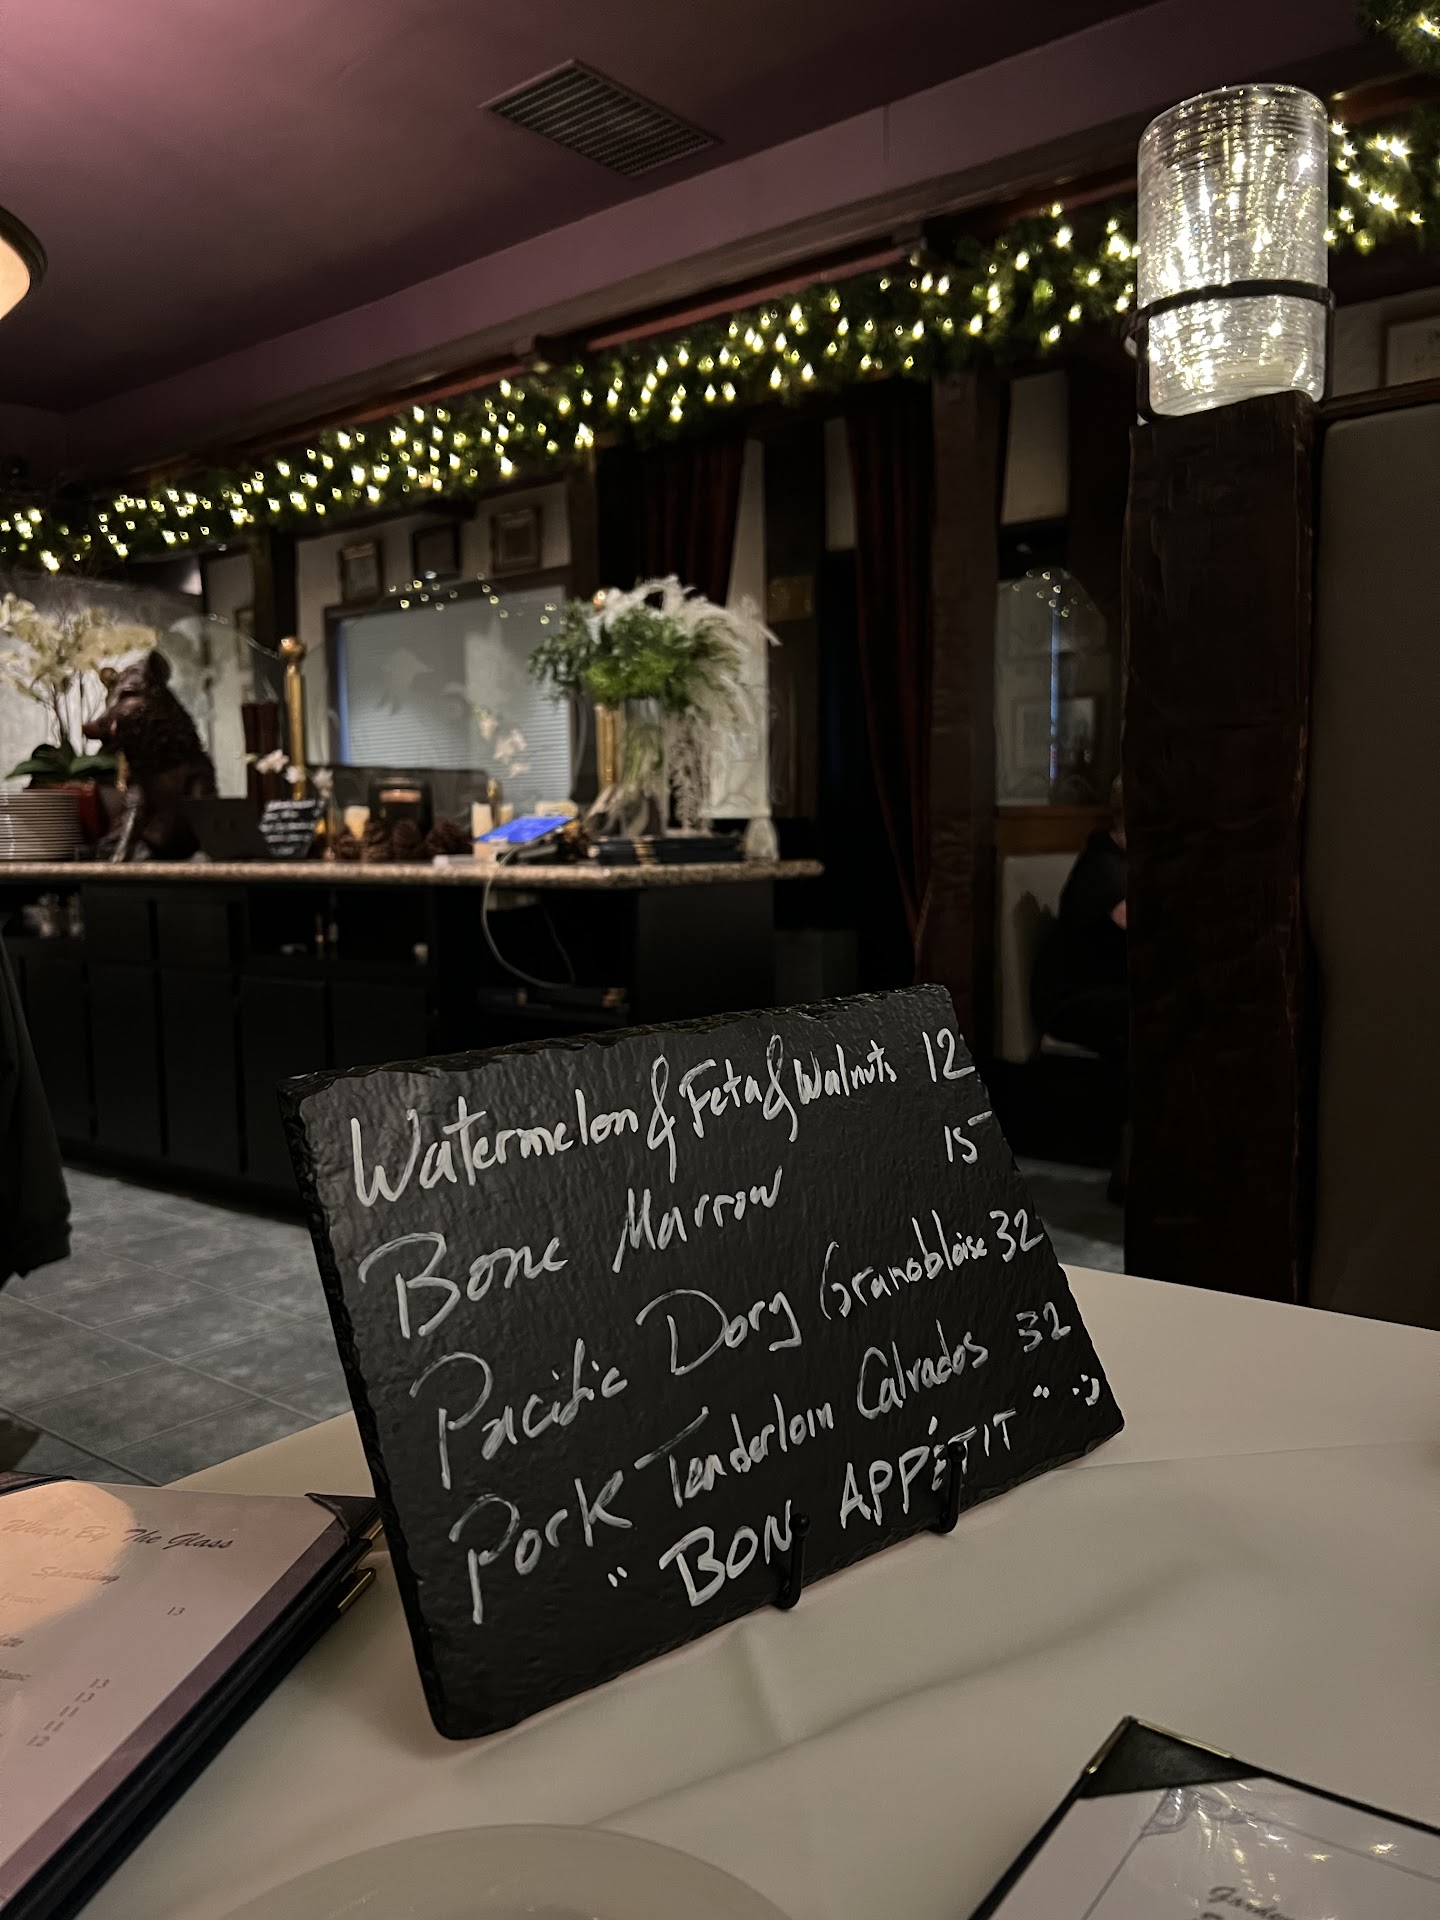 Watermelon & Feta & Walnuts 12
Bone Marrow 15
Pacific Dory Granobloise 32
Pork Tenderloin Calvados 32
" BON APPÉTIT " :)
Wines By The Glass
Sparkling
13
13
13